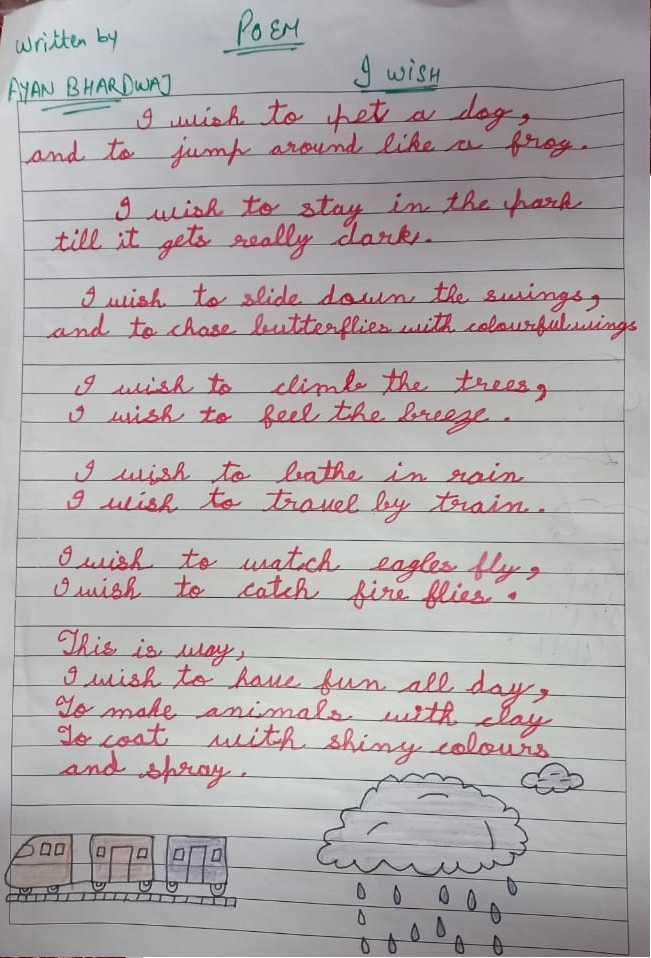 Written by
POEM
AYAN BHARDWAJ
I WISH
I wish to pet a dog,
and to jump around like a frog.
I wish to stay in the park
till it gets really dark.
I wish to slide down the swings,
and to chase butterflies with colourful wings
I wish to climb the trees,
I wish to feel the breeze.
I wish to bathe in rain
I wish to travel by train.
I wish to watch eagles fly,
I wish to catch fire flies.
This is way,
I wish to have fun all day,
To make animals with clay
To coat with shiny colours
and spray.